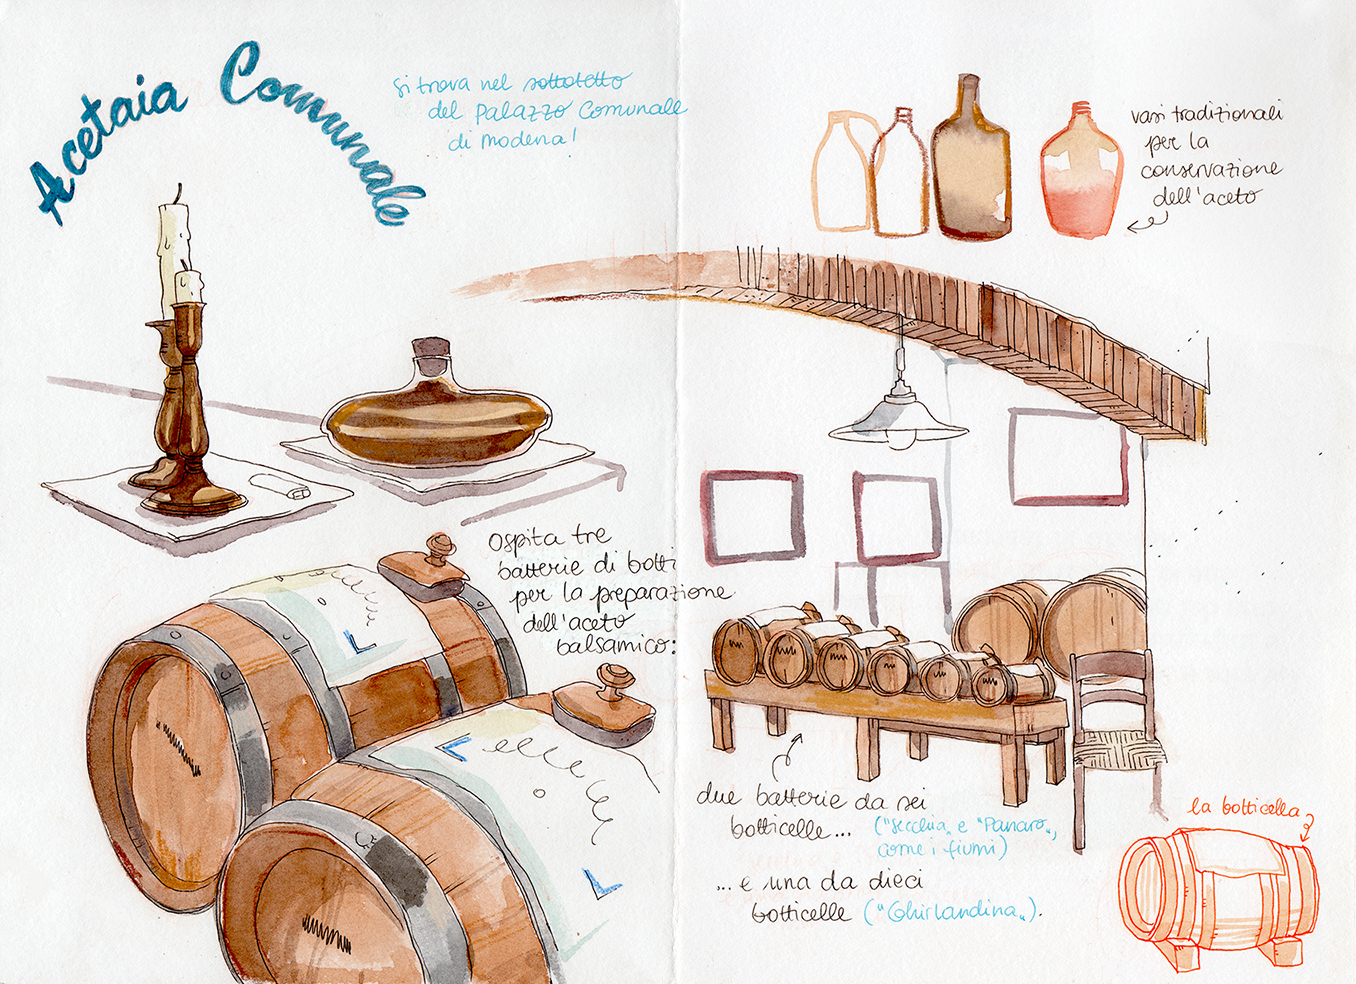 Acetaia Comunale
si trova nel sottotetto
del Palazzo Comunale
di Modena!
vasi tradizionali
per la
conservazione
dell'aceto
ospita tre
batterie di botti
per la preparazione
dell'aceto
balsamico:
due batterie da sei
botticelle... ("Secchia" e "Panaro",
come i fiumi)
... e una da dieci
botticelle ("Ghirlandina").
la botticella